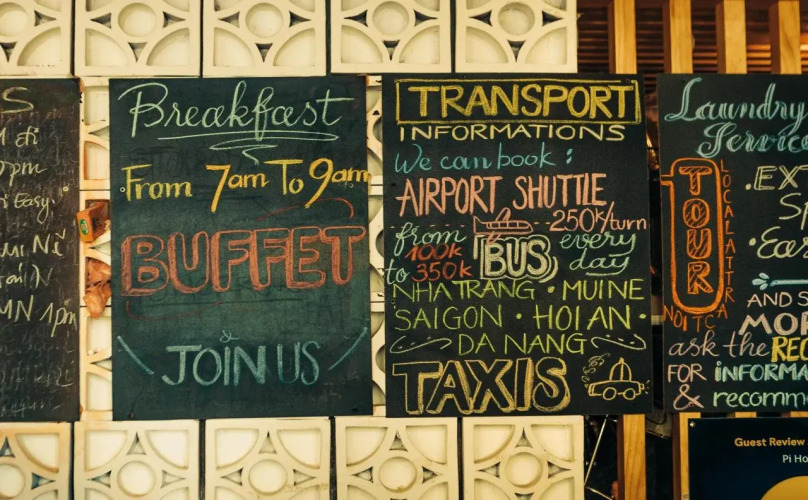 S
pm
Easy.
MUI NÉ
MN 1pm
Breakfast
From 7am To 9am
BUFFET
&
JOIN US
TRANSPORT
INFORMATIONS
We can book:
AIRPORT SHUTTLE
250k/turn
from 100k
to 350k
BUS
every
day
NHATRANG • MUINE
SAIGON • HOI AN •
DA NANG
TAXIS
Laundry
Service
TOUR
LOCAL ATTR
EX
Eas
AND S
MO
ask the REC
FOR INFORMA
& recomm
Guest Review
Pi Ho